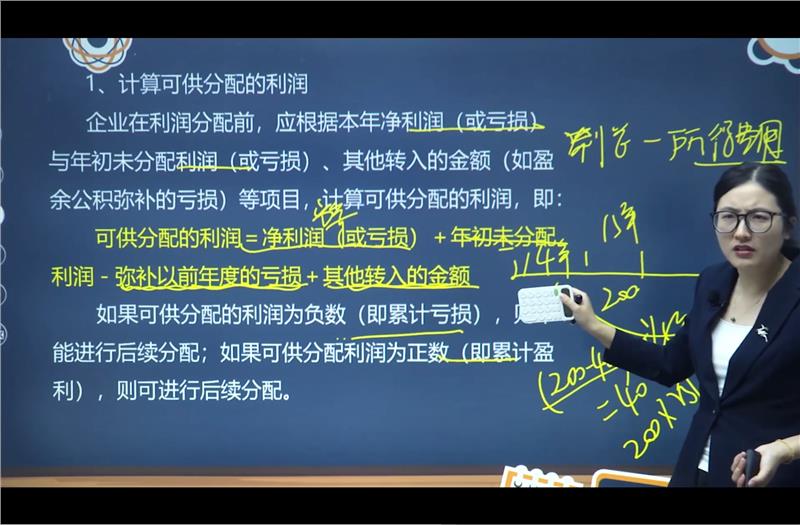 1、计算可供分配的利润
企业在利润分配前，应根据本年净利润（或亏损）
与年初未分配利润（或亏损）、其他转入的金额（如盈
余公积弥补的亏损）等项目，计算可供分配的利润，即：
可供分配的利润＝净利润（或亏损）＋年初未分配
利润－弥补以前年度的亏损＋其他转入的金额
如果可供分配的利润为负数（即累计亏损），则
能进行后续分配；如果可供分配利润为正数（即累计盈
利），则可进行后续分配。
利总－所得费用
14年
15年
200
=40